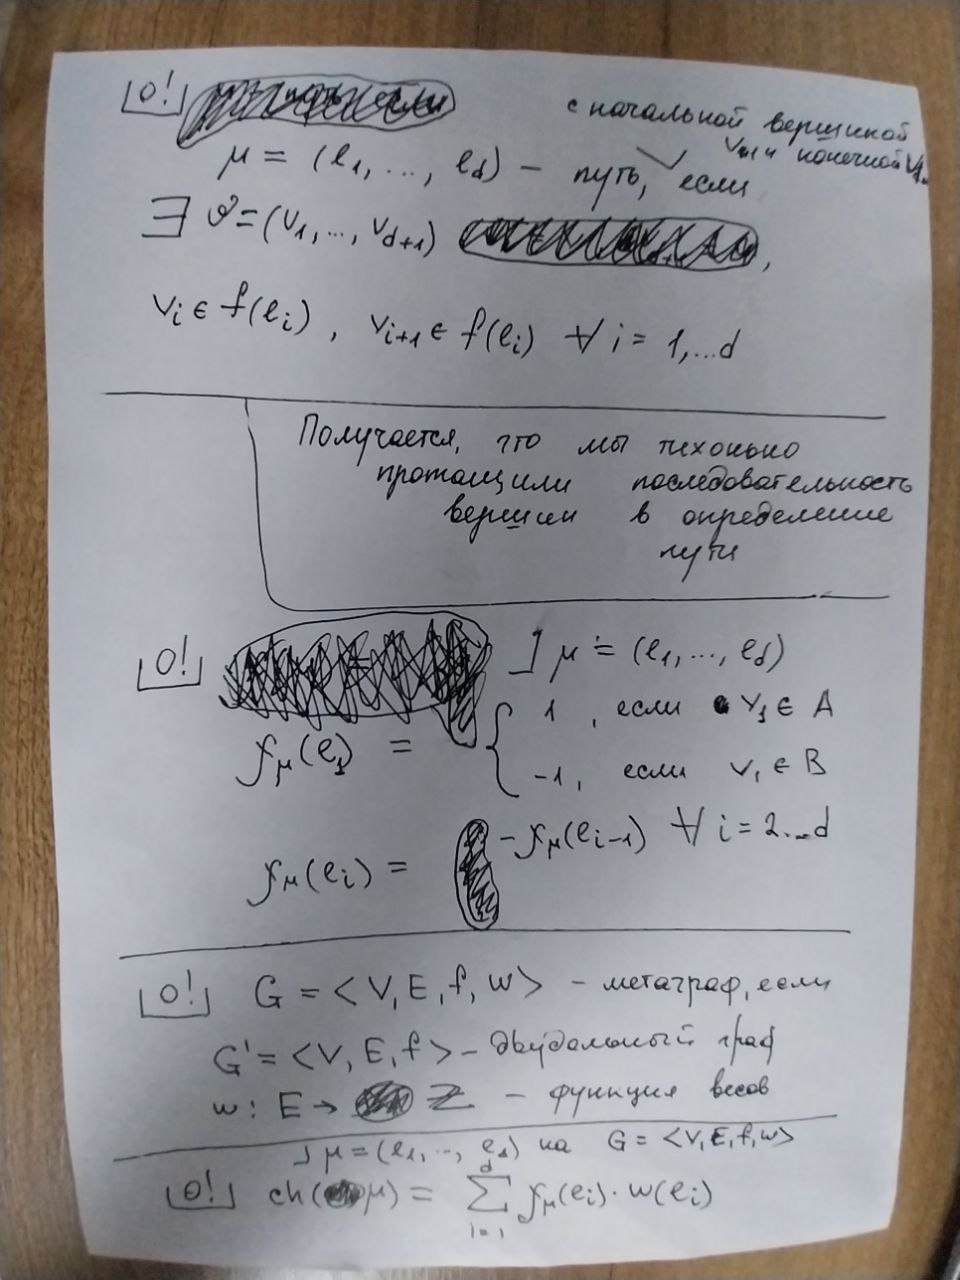 [O!] с начальной вершиной
v₁ и конечной
μ = (e₁, ..., e_d) – путь, если
∃ 𝒱 = (v₁, ..., v_{d+1}) ,
vᵢ ∈ f(eᵢ) , vᵢ₊₁ ∈ f(eᵢ) ∀ i = 1,...d
Получается, что мы тихонько
протащили последовательность
вершин в определение
пути
[O!] ] μ = (e₁, ..., e_d)
f_μ(e₁) = { 1 , если v₁ ∈ A
-1, если v₁ ∈ B
f_μ(eᵢ) = -f_μ(eᵢ₋₁) ∀ i = 2...d
[O!] G = <V, E, f, w> – метаграф, если
G' = <V, E, f> – двудольный граф
w : E → ℤ – функция весов
] μ = (e₁, .., e_d) на G = <V, E, f, w>
[O!] ch(μ) = ∑_{i=1}^{d} f_μ(eᵢ) · w(eᵢ)